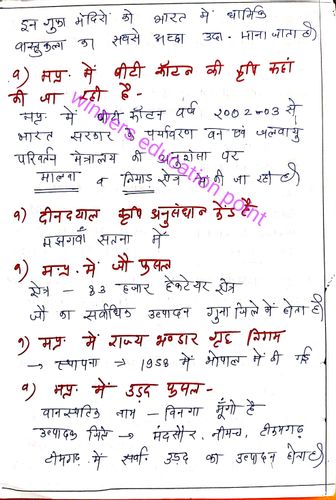 इन गुफा मंदिरों को भारत में धार्मिक
वास्तुकला का सबसे अच्छा उदा. माना जाता है।
१) मप्र. में बीटी कॉटन की कृषि कहां
की जा रही है-
मप्र. में बीटी कॉटन वर्ष 2002-03 से
भारत सरकार के पर्यावरण वन एवं जलवायु
परिवर्तन मंत्रालय की अनुशंसा पर
मालवा व निमाड़ क्षेत्र में की जा रही है।
१) दीनदयाल कृषि अनुसंधान केंद्र है
मझगवाँ सतना में
१) मप्र. में जौ फसल
क्षेत्र - 83 हजार हेक्टेयर क्षेत्र
जौ का सर्वाधिक उत्पादन गुना जिले में होता है।
१) मप्र. में राज्य भण्डार गृह निगम
→ स्थापना → 1958 में भोपाल में की गई
१) मप्र. में उड़द फसल-
वानस्पतिक नाम - विनगा मूँगो है
उत्पादक जिले → मंदसौर, नीमच, टीकमगढ़
टीकमगढ़ में सर्वा. उड़द का उत्पादन होता है।
winners education point